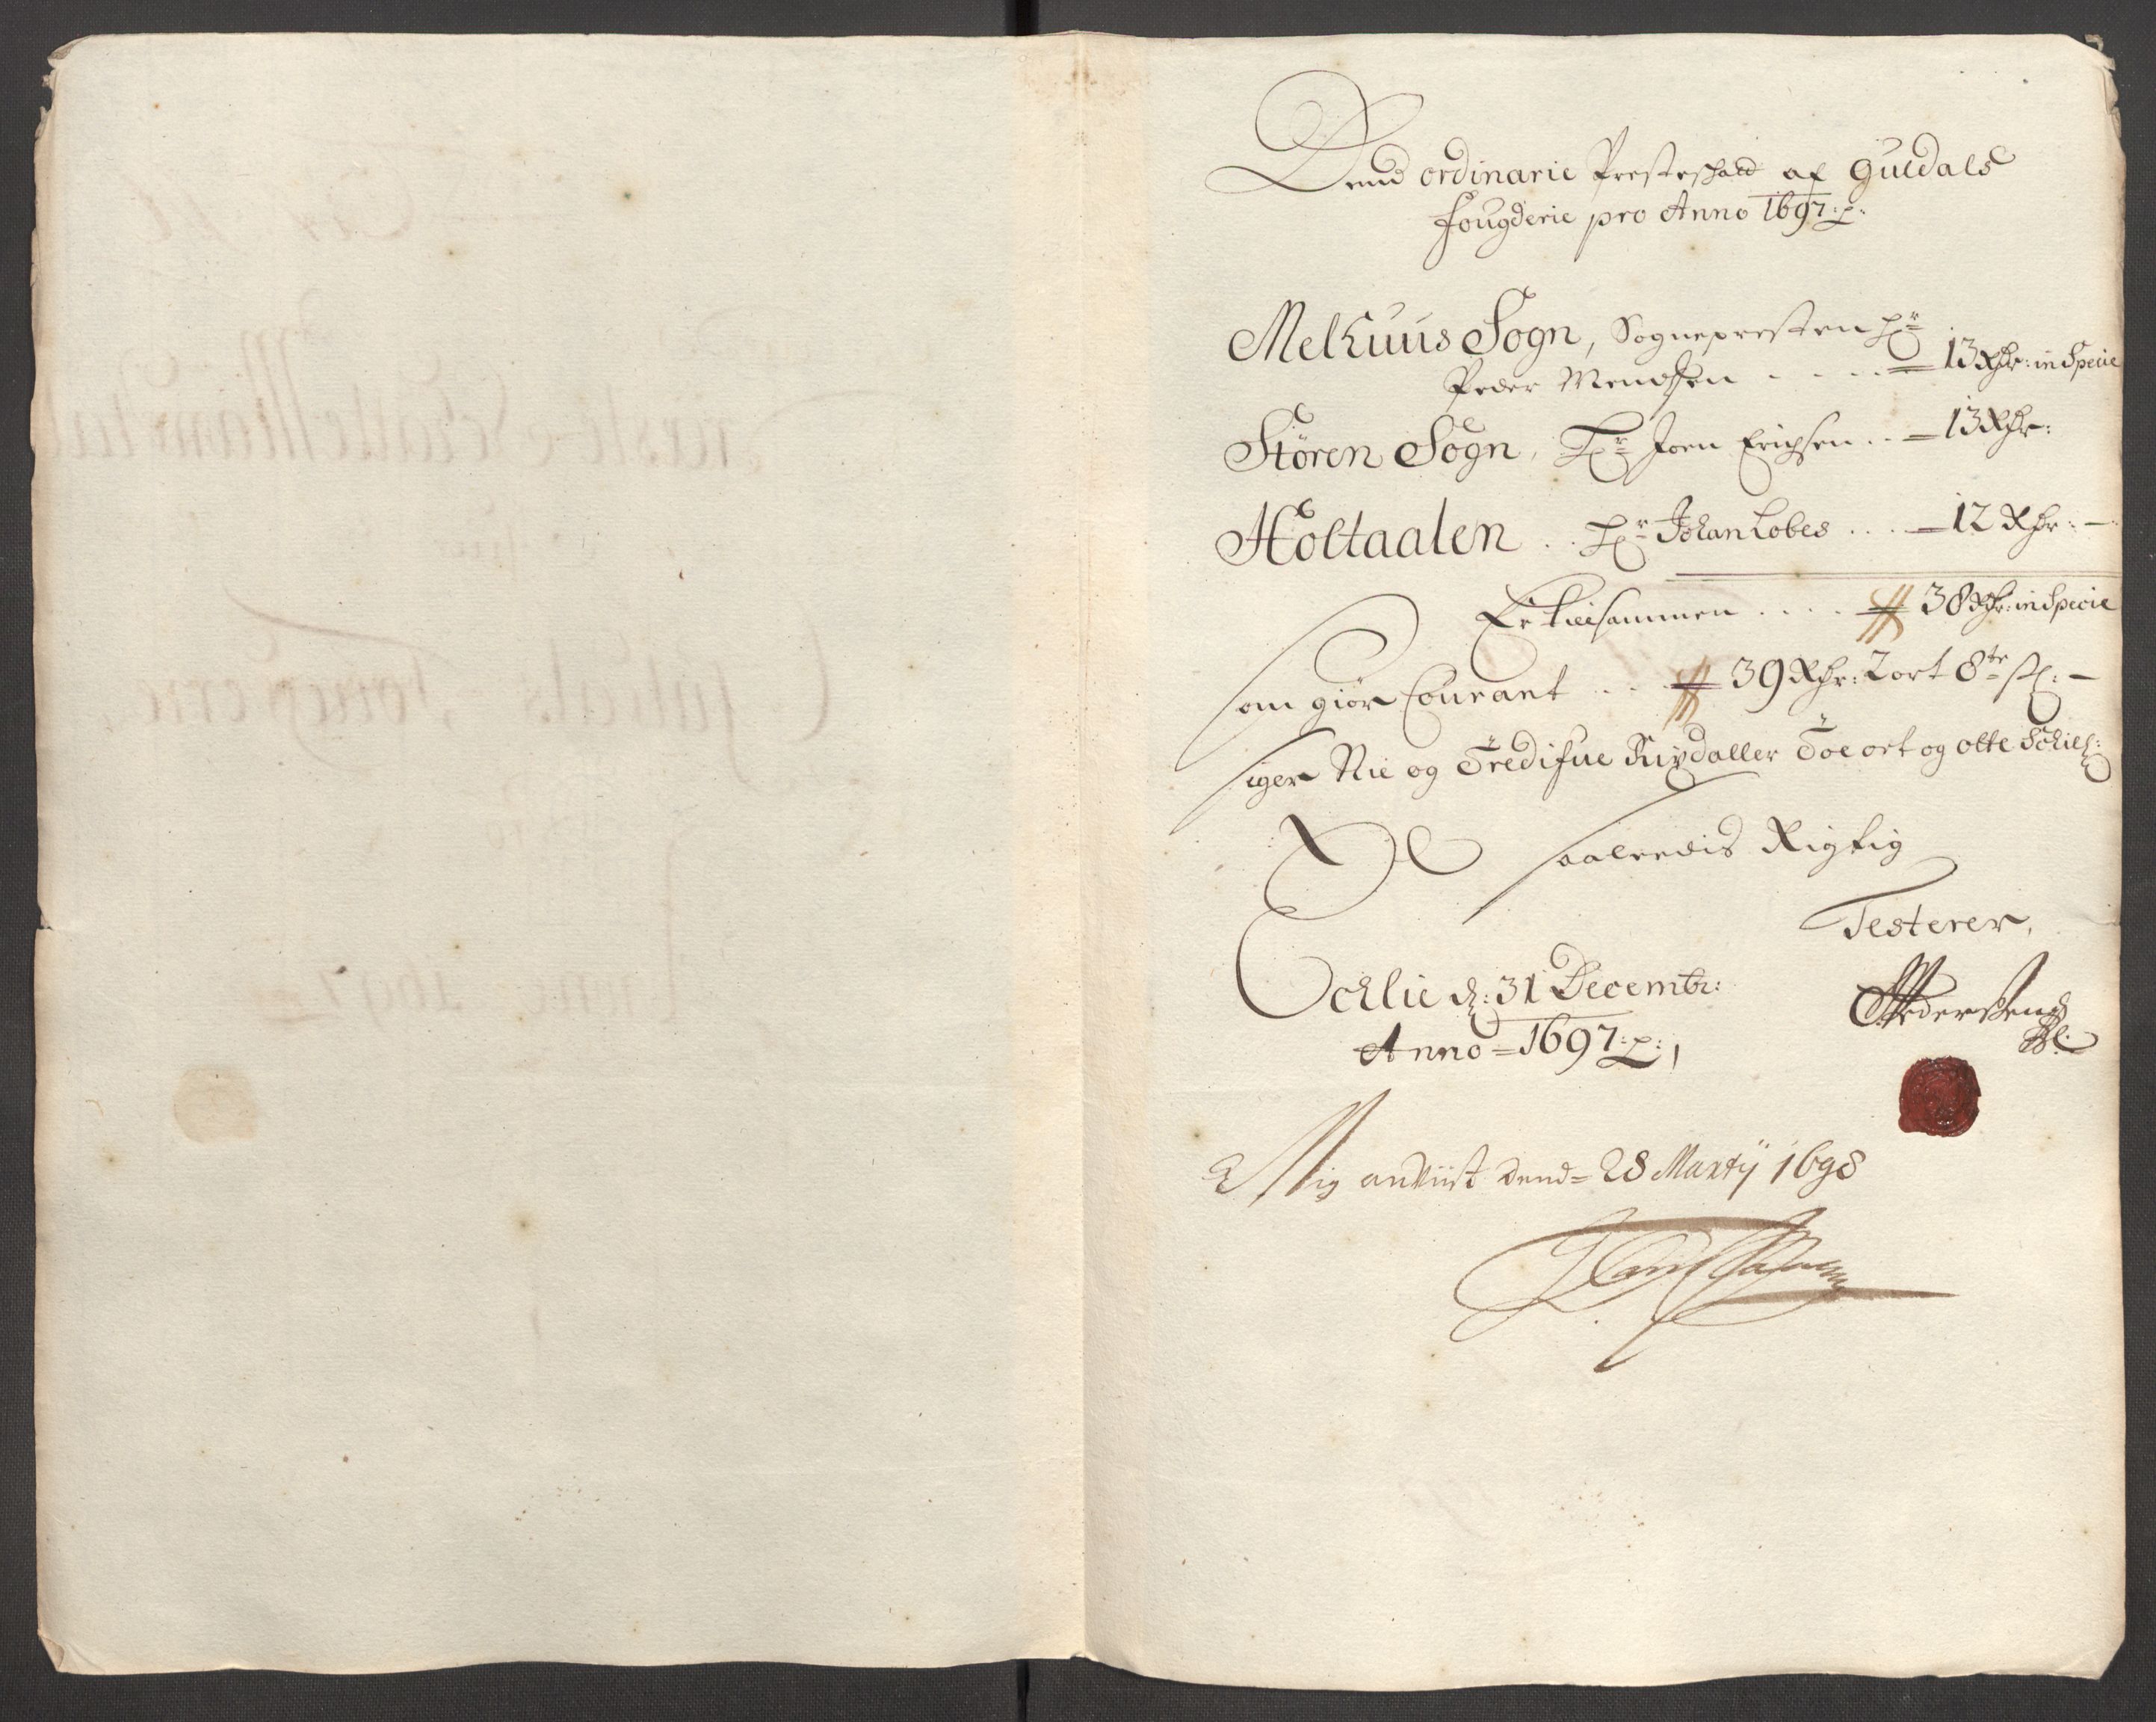 Dend ordinarie Presteschatt af Guldals
Fougderie pro Anno 1697:
Melhuus Sogn, Sognepresten Hr
Peder Mendsen . . . . 13 Rdr: in Specie
Støren Sogn, Hr Joen Erichsen . . 13 Rdr:
Holtaalen . . Hr Johan Lobes . . . 12 Rdr: —
Er tilsammen . . . . 38 Rdr: in Specie
Som giør Courant . . . 39 Rdr: 2 ort 8te s: —
Siger Nie og Tredifue Rixdaller Toe ort og otte Schiel:
At Saaledis Rigtig
Testerer,
Oehlie d: 31 Decembr:
Anno 1697:
Pedersen
Mig anviist dend 28 Martij 1698